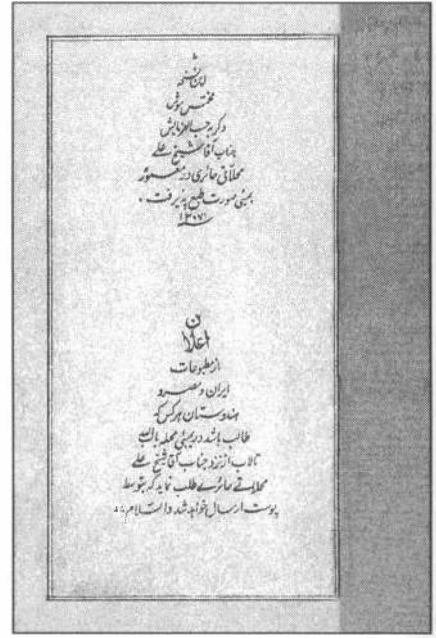 این نسخه
مختصر موش
و گربه حسب الفرمایش
جناب آقا شیخ علی
محلاتی حائری در معموره
بمبئی صورت طبع پذیرفت .
سنه ۱۳۰۷
اعلان
از مطبوعات
ایران و مصر و
هندوستان هر کس که
طالب باشد در بمبئی محله
تالاب از نزد جناب آقا شیخ علی
محلاتی حائری طلب نماید که بتوسط
پوست ارسال خواهد شد والسلام